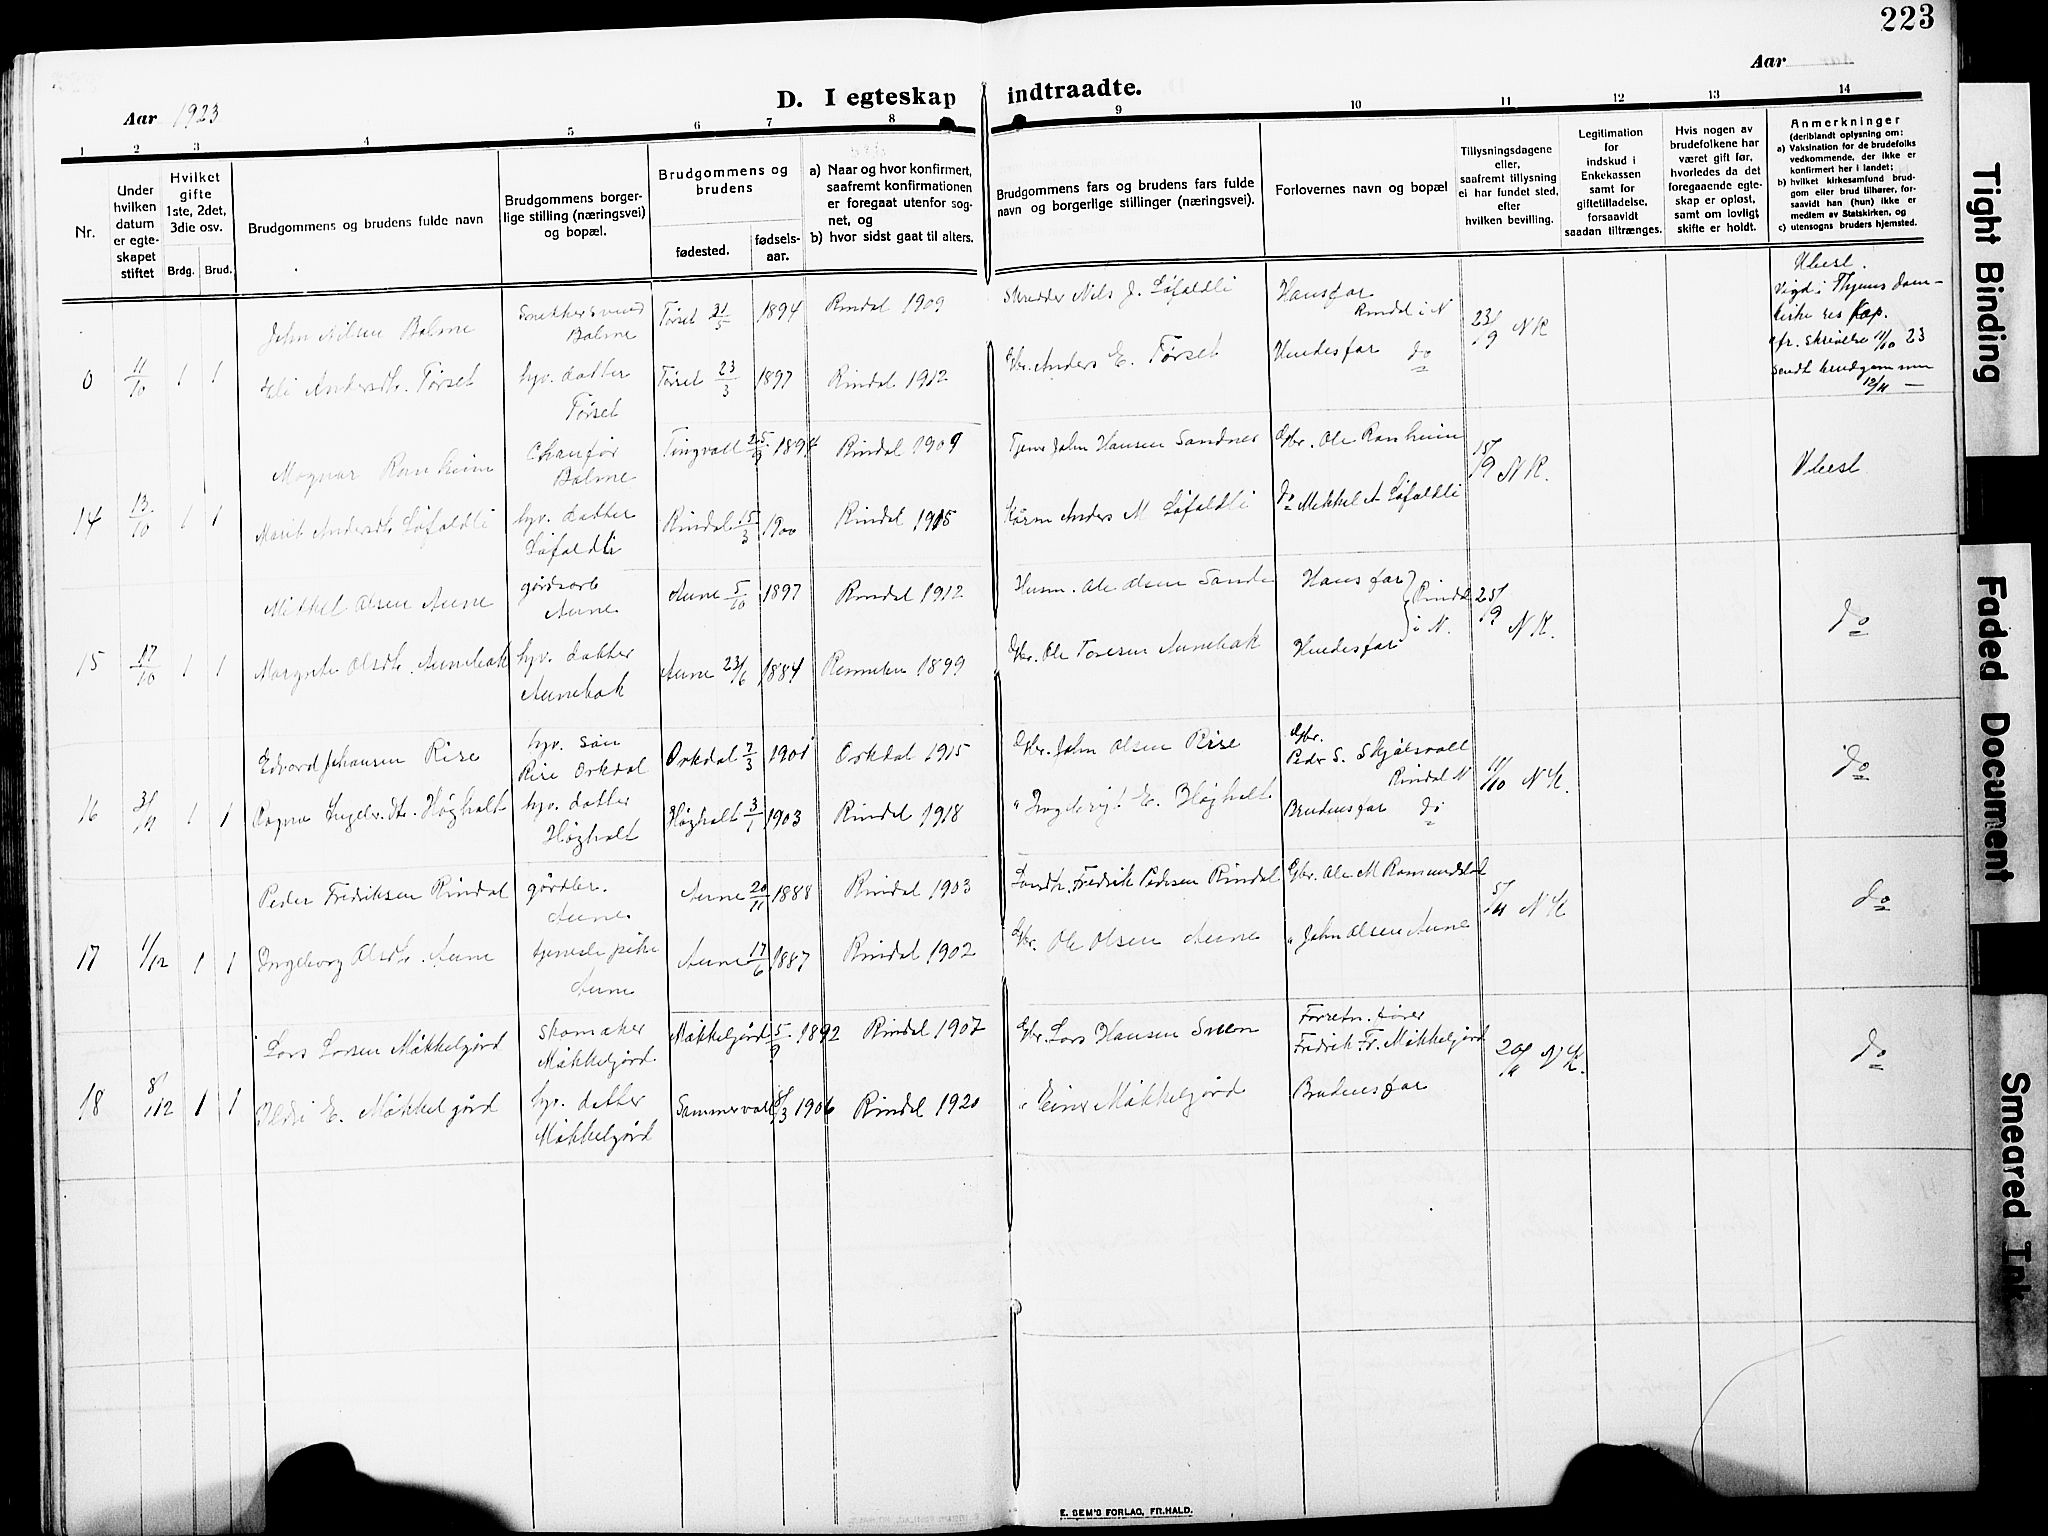 223
Aar 1923
D. I egteskap indtraadte.
Aar
1 2 3 4 5 6 7 8 9 10 11 12 13 14
Nr.
Under hvilken datum er egteskapet stiftet
Hvilket gifte 1ste, 2det, 3die osv.
Brdg. Brud.
Brudgommens og brudens fulde navn
Brudgommens borgerlige stilling (næringsvei) og bopæl.
Brudgommens og brudens
fødested.
fødselsaar.
a) Naar og hvor konfirmert, saafremt konfirmationen er foregaat utenfor sognet, og
b) hvor sidst gaat til alters.
Brudgommens fars og brudens fars fulde navn og borgerlige stillinger (næringsvei).
Forlovernes navn og bopæl
Tillysningsdagene eller, saafremt tillysning ei har fundet sted, efter hvilken bevilling.
Legitimation for indskud i Enkekassen samt for giftetilladelse, forsaavidt saadan tiltrænges.
Hvis nogen av brudefolkene har været gift før, hvorledes da det foregaaende egteskap er opløst, samt om lovligt skifte er holdt.
Anmerkninger
(deriblandt oplysning om:
a) Vaksination for de brudefolks vedkommende, der ikke er konfirmert her i landet;
b) hvilket kirkesamfund brudgom eller brud tilhører, forsaavidt han (hun) ikke er medlem av Statskirken, og
c) utensogns bruders hjemsted.
John Nilsen Bolme Snekkersvend Bolme Tørset 21/5 1894 Rindal 1909 Skrædder Nils J. Løfaldli Hansfar Rindal i N 23/9 N K
0 11/10 1 1 Eli Andersdtr. Tørset hjv. datter Tørset Tørset 23/3 1897 Rindal 1912 Gbr. Anders E. Tørset Hendesfar do
Ubesl.
Vigd i Thjems Dom-
kirke res Kap.
cfr. skrivelse 11/10 23
sendt
12/11 —
Magnar Ranheim Chaufør Bolme Tingvoll 25/3 1894 Rindal 1909 Tjen John Hansen Sandnes Gbr. Ole Ranheim 15/9 N K.
14 13/10 1 1 Marit Andersdt Løfaldli hjv. datter Løfaldli Rindal 15/3 1900 Rindal 1915 Anders M Løfaldli do Mikkel A Løfaldli
Ubesl
Mikkel Olsen Aune gårdsarb Aune Aune 5/10 1897 Rindal 1912 Husm. Ole Olsen Sande Hans far Rindal i N. 25/9 N K.
15 17/10 1 1 Margrete Olsdtr. Aunebak hjv. datter Aunebak Aune 23/6 1884 Rennebu 1899 Gbr. Ole Toresen Aunebak Hendesfar
do
Edvard Johansen Rise hjv. søn Rise Orkdal Orkdal 7/3 1901 Orkdal 1915 Gbr. John Olsen Rise Gbr. Peder S. Skjølsvold Rindal N 11/10 N K.
16 3/11 1 1 Ragna Ingebr. dtr. Høghalt hjv. datter Høghalt Høghalt 3/1 1903 Rindal 1918 " Ingebrigt E. Høghalt Brudensfar do
do
Peder Fredriksen Rindal gårdbr. Aune Aune 20/11 1888 Rindal 1903 Landh. Fredrik Pedersen Rindal Gbr. Ole M Romundstad 5/11 N K
17 1/12 1 1 Ingeborg Olsdtr. Aune tjenestepike Aune Aune 17/6 1887 Rindal 1902 Gbr. Ole Olsen Aune " John Olsen Aune
do
Lars Larsen Mikkelgård skomaker Mikkelgård Mikkelgård 5/9 1892 Rindal 1907 Gbr. Lars Hansen Snem Forretn. fører Fredrik Fr. Mikkelgård N K.
18 8/12 1 1 Ildri E. Mikkelgård hjv. datter Mikkelgård Sammervold 8/3 1906 Rindal 1920 " Einer Mikkelgård Brudensfar
do
E. SEM'S FORLAG, FR.HALD.
Tight Binding
Faded Document
Smeared Ink